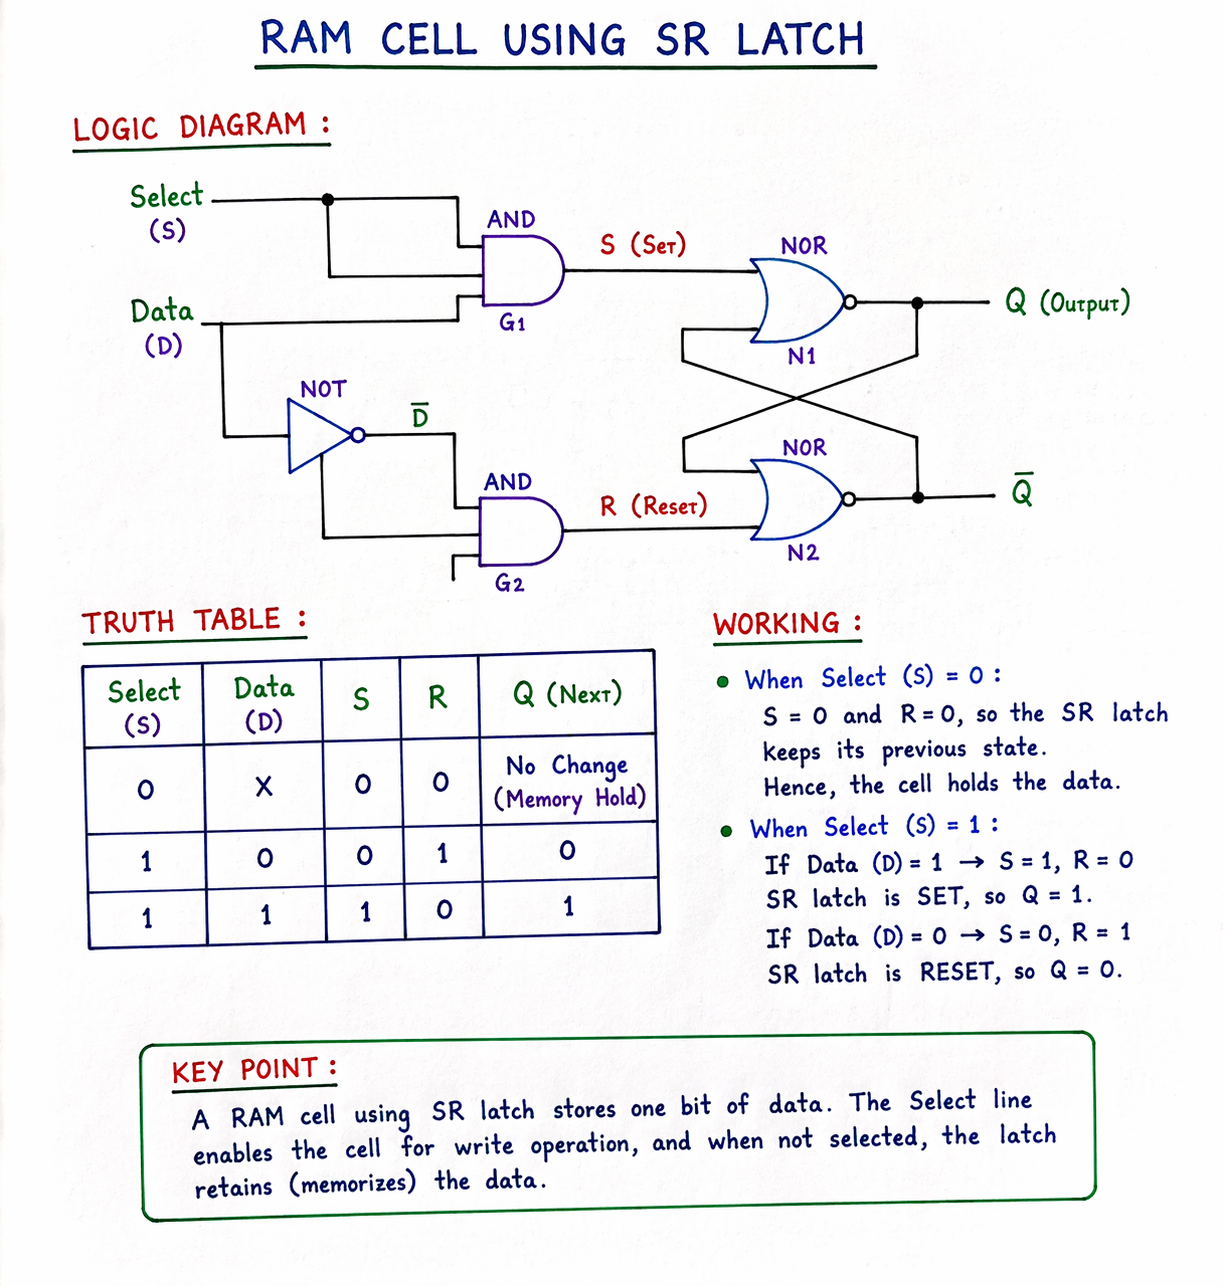 RAM CELL USING SR LATCH
LOGIC DIAGRAM :
Select
(S)
AND
S (Set)
NOR
Data
(D)
G1
Q (Output)
N1
NOT
D̅
AND
NOR
R (Reset)
Q̅
N2
G2
TRUTH TABLE :
Select (S) Data (D) S R Q (Next)
0 X 0 0 No Change (Memory Hold)
1 0 0 1 0
1 1 1 0 1
WORKING :
• When Select (S) = 0 :
S = 0 and R = 0, so the SR latch
keeps its previous state.
Hence, the cell holds the data.
• When Select (S) = 1 :
If Data (D) = 1 → S = 1, R = 0
SR latch is SET, so Q = 1.
If Data (D) = 0 → S = 0, R = 1
SR latch is RESET, so Q = 0.
KEY POINT :
A RAM cell using SR latch stores one bit of data. The Select line
enables the cell for write operation, and when not selected, the latch
retains (memorizes) the data.